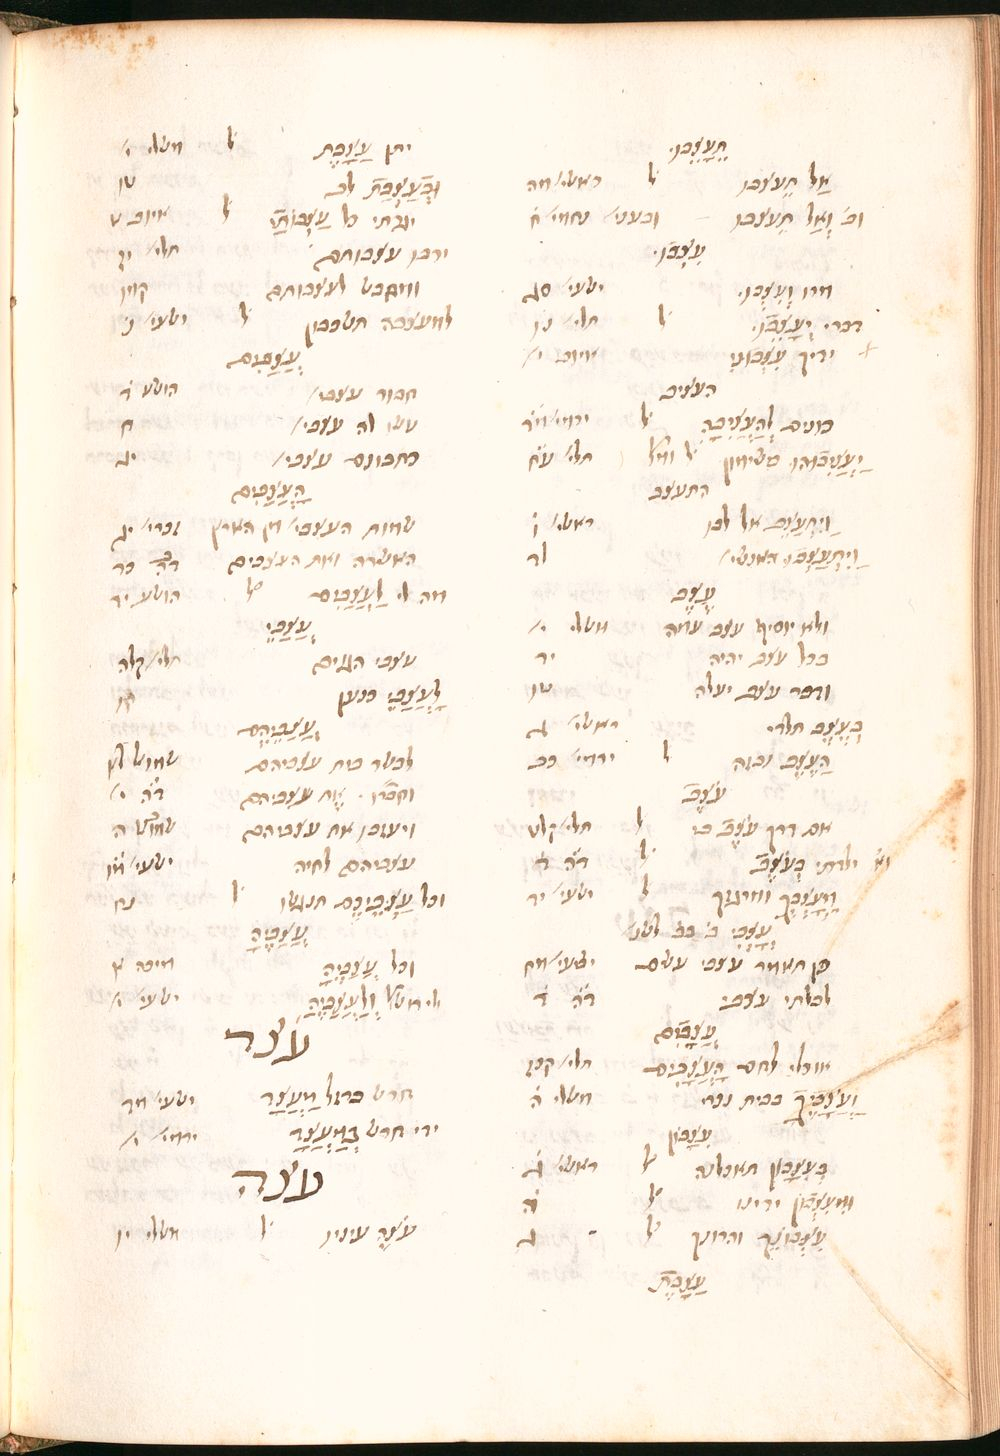 תֵּעָצְבוּ
אַל תֵּעצבו ל בראשי׳ מה
וב׳ וְאַל תֵּעצבו ובעני׳ נחמי׳ ח
עִצְּבוּ
מרו וְעִצְּבוּ ישעי׳ סג
דברי יְעַצֵּבוּ ל תלי׳ נו
ידיך עִצְּבוּנִי איוב י׳
העציב
כונים לְהַעֲצִיבָהּ ל ירמי׳ מד
יַעֲצִיבוּהוּ בישימון ל תלי׳ עח
התעצב
וַיִּתְעַצֵּב אל לבו בראשי׳ ו
וַיִּתְעַצְּבוּ האנשי׳ לד
עֶצֶב
ולא יוסיף עצב עמה משלי י׳
בכל עצב יהיה יד
ודבר עצב יעלה טו
בְּעֶצֶב תלדי בראשי׳ ג
הַעֶצֶב נבזה ל ירמי׳ כב
עֹצֶב
אם דרך עֹצֶב בי ל תלי׳ קלט
וא׳ ילדתי בְּעֹצֶב ל ד״ה ד
מֵעָצְבְּךָ ומרגזך ל ישעי׳ יד
עָצְבִּי ב׳ בב׳ לשנ׳
פן תאמר עצבי עשם ישעי׳ מח
לבלתי עצבי ד״ה ד
עֲצָבִים
אוכלי לחם הָעֲצָבִים תלי׳ קכז
וַעֲצָבֶיךָ בבית נכרי משלי ה
עִצָּבוֹן
בְּעִצָּבוֹן תאכלנה ל בראשי׳ ג
וּמֵעִצְּבוֹן ידינו ל ה
עִצְּבוֹנֵךְ והרונך ל ג
עַצֶּבֶת
יתן עַצָּבֶת ל משלי י׳
וּבְעַצְּבַת לב טו
יגרתי כל עַצְּבוֹתַי ל איוב ט
ירבו עצבותם תלי׳ יו
ומחבש לעצבותם קמז
למעצבה תשכבון ל ישעי׳ נ׳
עֲצַבִּים
חבור עצבי׳ הושע ד
עשו לה עצבי׳ ח
כתבונם עצבי׳ יג
הָעֲצַבִּים
שמות העצבי׳ מן הארץ זכרי׳ יג
האשרה ואת העצבים ד״ה כד
מה לי לַעֲצַבִּים ל הושע יד
עֲצַבֵּי
עצבי הגוים תלי׳ קלה
לַעֲצַבֵּי כנען קו
עֲצַבֵּיהֶם
לבשר בית עצביהם שמו׳ לא
את עצביהם ד״ה י׳
ויעזבו את עצביהם שמו׳ ה
עצביהם לחיה ישעי׳ מו
וכל עַצְּבֵיכֶם תנגשו ל נח
עֲצַבֶּיהָ
וכל עֲצַבֶּיהָ מיכה א
לירוש׳ וְלַעֲצַבֶּיהָ ישעי׳ י׳
עצד
חרש ברזל מַעֲצָד ישעי׳ מד
ידי חרש בַּמַּעֲצָד ירמי׳ י׳
עצה
עֹצֶה עיניו ל משלי יו